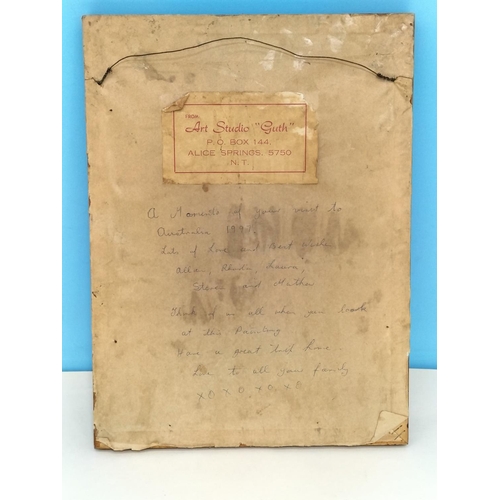 FROM
Art Studio "Guth"
P.O. BOX 144
ALICE SPRINGS, 5750
N.T.
A Momento of your visit to
Australia
Lots of love and best wishes
Allan,
Steven and
Think of us all when you look
at this Painting
Have a great trip home
Love to all your family
XO XO XO XO